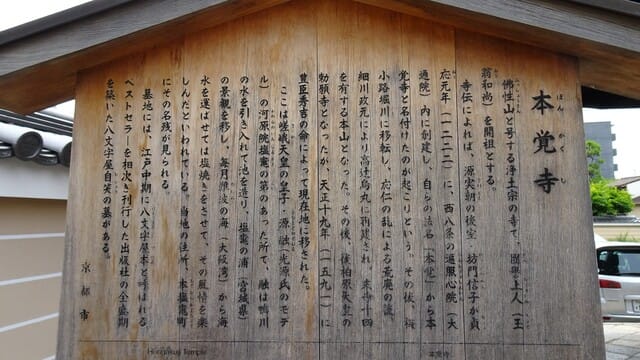 本覚寺
ほんかくじ
佛性山と号する浄土宗の寺で、團譽上人(玉
翁和尚)を開祖とする。
寺伝によれば、源実朝の後室、坊門信子が貞
応元年(一二二二)に、西八条の遍照心院(大
通院)内に創建し、自らの法名「本覚」から本
覚寺と名付けたのが起こりという。その後、梅
小路堀川に移転し、応仁の乱による荒廃の後、
細川政元により高辻烏丸に再建され、末寺十四
を有する本山となった。その後、後柏原天皇の
勅願寺となったが、天正十九年(一五九一)に
豊臣秀吉の命によって現在地に移された。
ここは嵯峨天皇の皇子・源融(光源氏のモデ
ル)の河原院塩竈の第のあった所で、融は鴨川
の水を引き入れて池を造り、塩竈の浦(宮城県)
の景観を移し、毎月難波の海(大阪湾)から海
水を運ばせては塩焼きをさせて、その風情を楽
しんだといわれている。当地の住所、本塩竈町
にその名残が見られる。
墓地には、江戸中期に八文字屋本と呼ばれる
ベストセラーを相次ぎ刊行した出版社の全盛期
を築いた八文字屋自笑の墓がある。
京都市
Hongakuji Temple
本覚寺